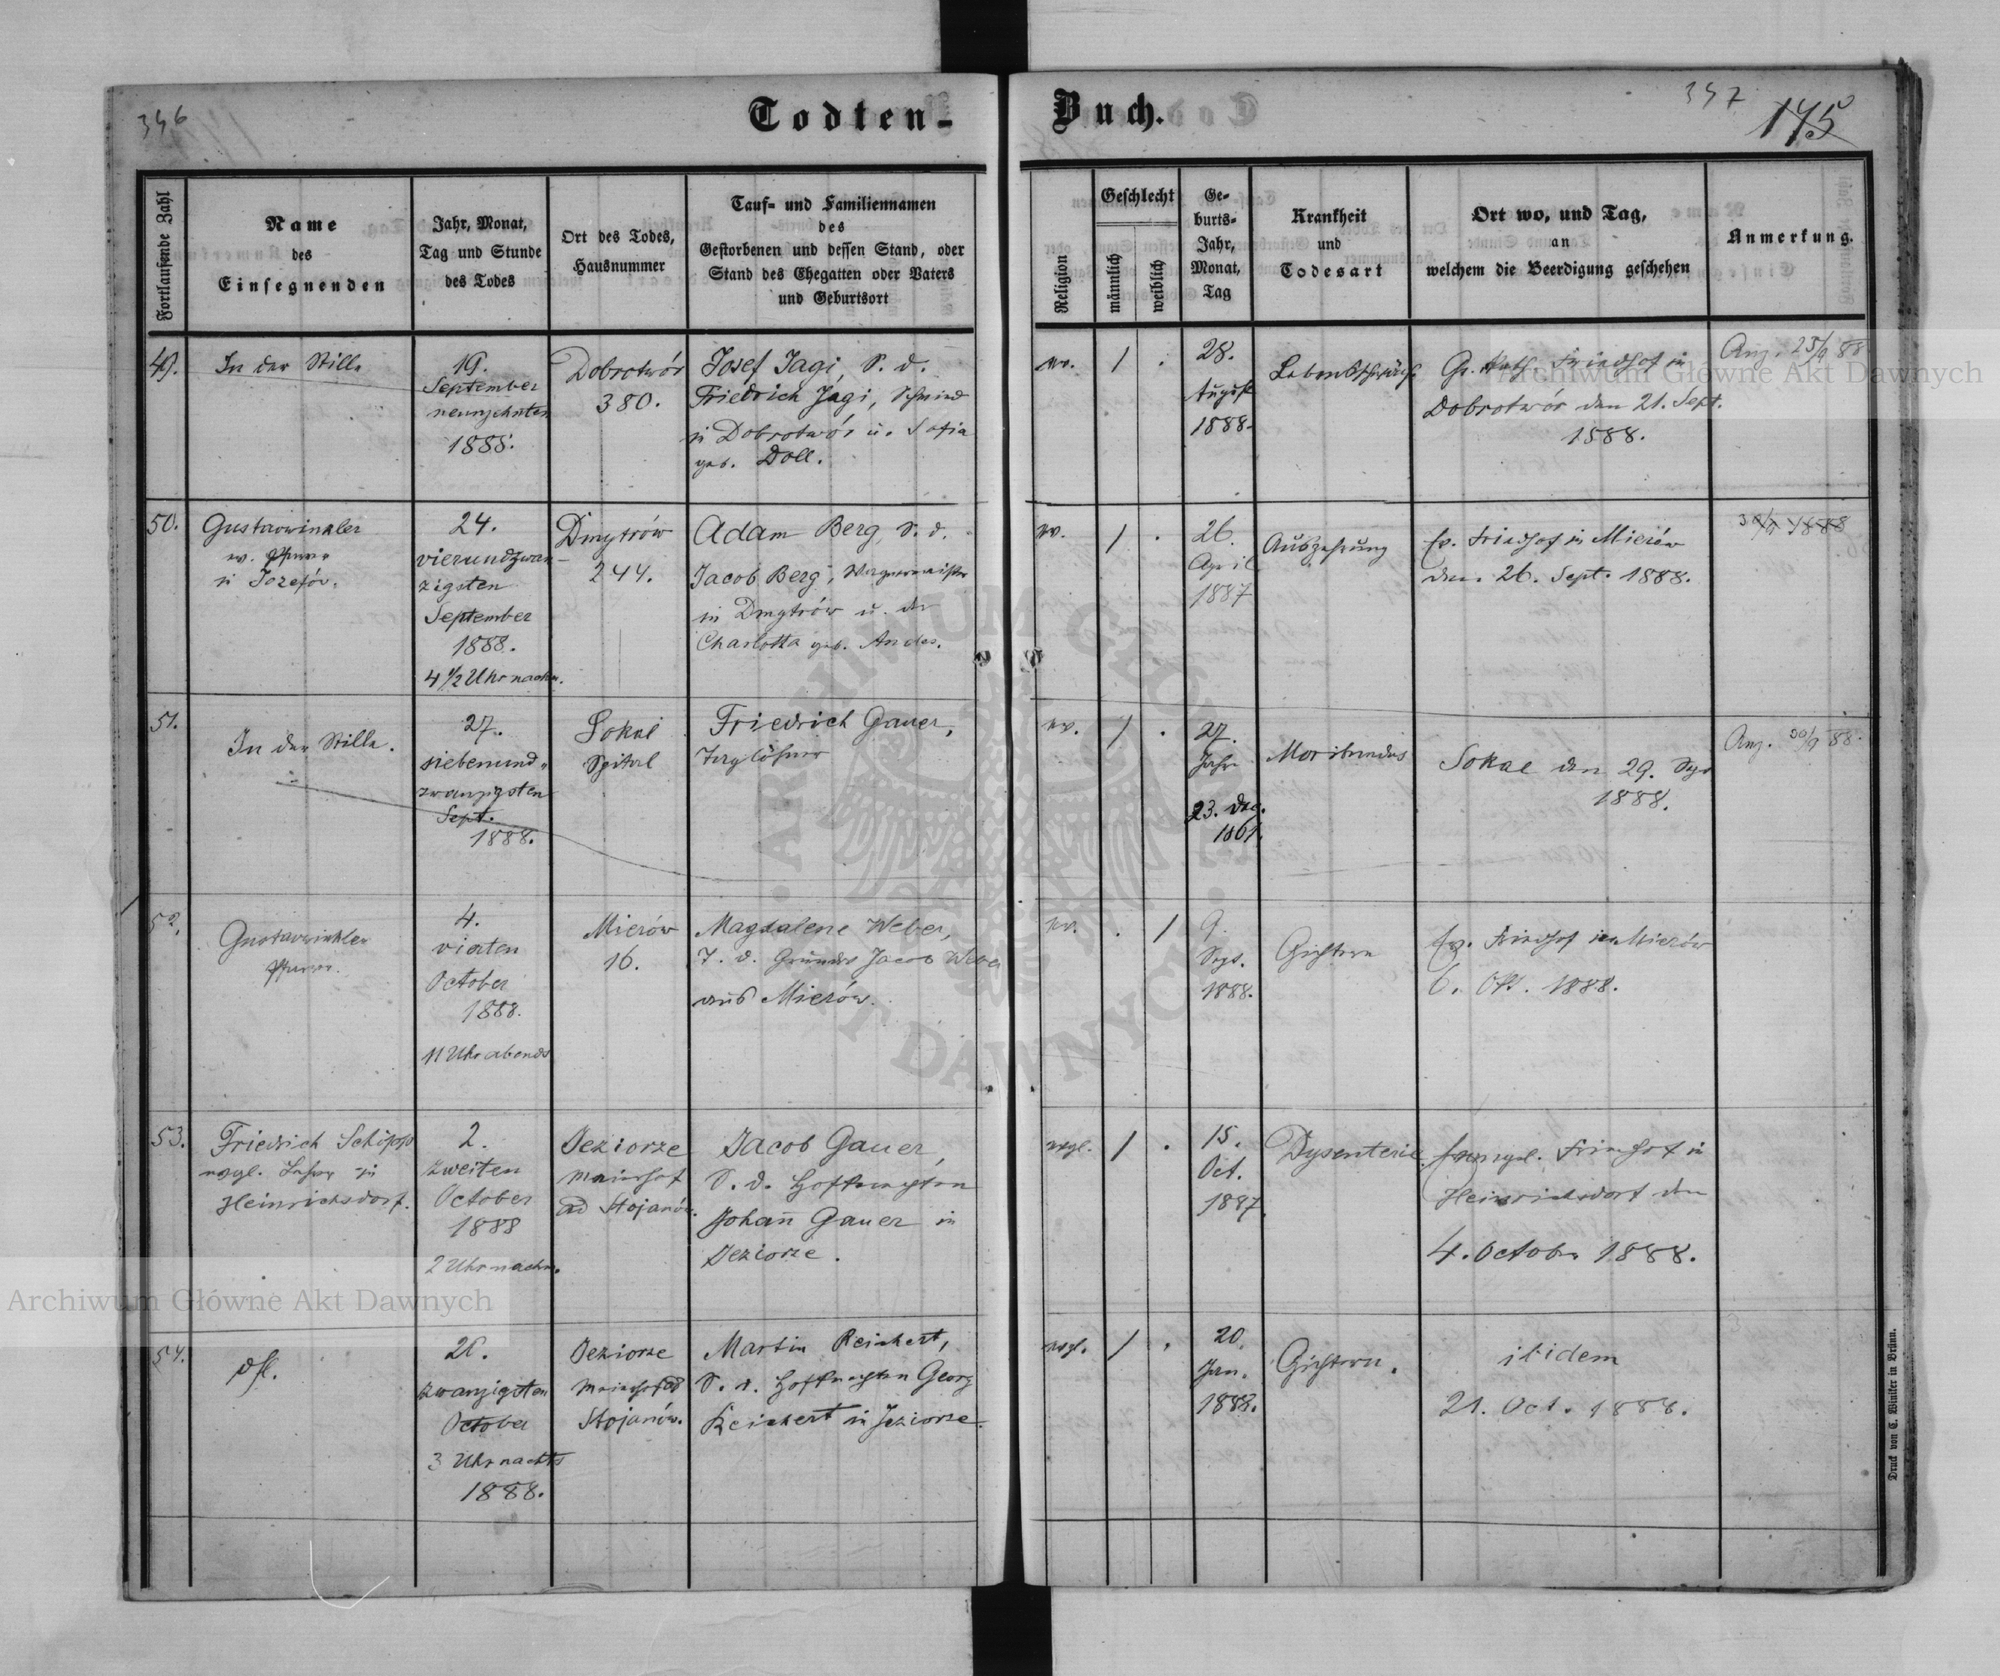 346
Todten-
Buch.
347
175
Fortlaufende Zahl
Name
des
Einsegnenden
Jahr, Monat,
Tag und Stunde
des Todes
Ort des Todes,
Hausnummer
Tauf- und Familiennamen
des
Gestorbenen und dessen Stand, oder
Stand des Ehegatten oder Vaters
und Geburtsort
Religion
Geschlecht
männlich
weiblich
Ge-
burts-
Jahr,
Monat,
Tag
Krankheit
und
Todesart
Ort wo, und Tag,
an
welchem die Beerdigung geschehen
Anmerkung.
49.
In der Stille
19.
September
neunzehnten
1888.
Dobrotwór
380.
Josef Jagi, S. d.
Friedrich Jagi, Schmied
in Dobrotwór u. Sofia
geb. Doll.
ev.
1
.
28.
August
1888.
Lebensschwäche
Gr. Kath. Friedhof in
Dobrotwór den 21. Sept.
1888.
Anz. 25/9 88
50.
Gustav Winkler
ev. Pfarrer
in Józefów.
24.
vierundzwan-
zigsten
September
1888.
4 1/2 Uhr nachm.
Dmytrów
244.
Adam Berg, S. d.
Jacob Berg, Wagnermeister
in Dmytrów u. der
Charlotta geb. Andes.
ev.
1
.
26.
April
1887
Auszehrung
Ev. Friedhof in Mierów
den 26. Sept. 1888.
30/9 1888
51.
In der Stille.
27.
siebenund-
zwanzigsten
Sept.
1888.
Sokal
Spital
Friedrich Gauer,
Taglöhner
ev.
1
.
27.
Jahre
23. Dez.
1861.
Moribundus
Sokal den 29. Sept
1888.
Anz. 30/9 88.
52.
Gustav Winkler
Pfarrer.
4.
vierten
October
1888.
11 Uhr abends
Mierów
16.
Magdalene Weber,
T. d. Grundw Jacob Weber
aus Mierów.
ev.
.
1
9.
Sept.
1888.
Gichtern
Ev. Friedhof in Mierów
6. Okt. 1888.
53.
Friedrich Schöpp
evgl. Lehrer in
Heinrichsdorf.
2.
zweiten
October
1888
2 Uhr nachm.
Jeziorze
Maierhof
ad Stojanów.
Jacob Gauer,
S. d. Hofknechten
Johan̄ Gauer in
Jeziorze.
evgl.
1
.
15.
Oct.
1887.
Dysenterie
Evangel. Friedhof in
Heinrichsdorf den
4. October 1888.
54.
dsl.
20.
zwanzigsten
October
3 Uhr nachts
1888.
Jeziorze
Maierhof ad
Stojanów.
Martin Reichert,
S. d. Hofknechten Georg
Reichert in Jeziorze.
evgl.
1
.
20.
Jan.
1888.
Gichtern.
ibidem
21. Oct. 1888.
Druck von C. Winiker in Brünn.
Archiwum Główne Akt Dawnych
Archiwum Główne Akt Dawnych
ARCHIWUM GŁÓWNE AKT DAWNYCH